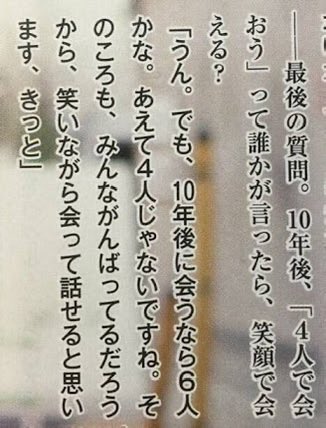 ――最後の質問。10年後、「4人で会
おう」って誰かが言ったら、笑顔で会
える?
「うん。でも、10年後に会うなら6人
かな。あえて4人じゃないですね。そ
のころも、みんながんばってるだろう
から、笑いながら会って話せると思い
ます、きっと」